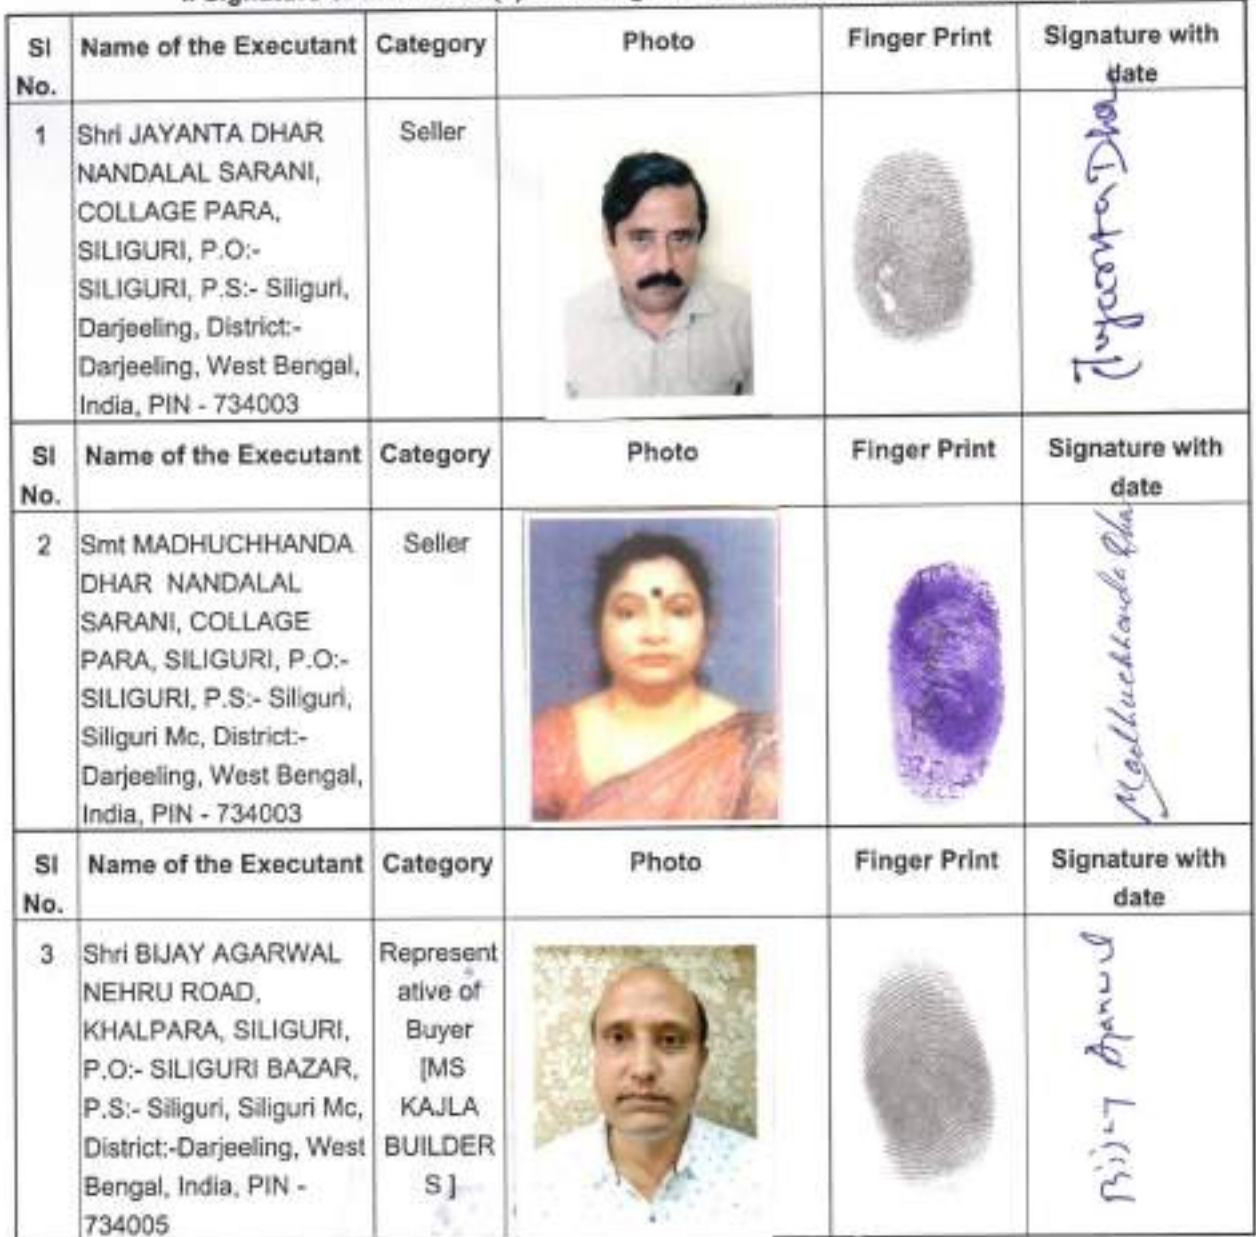 Signature
Sl No. Name of the Executant Category Photo Finger Print Signature with date
1 Shri JAYANTA DHAR Seller
NANDALAL SARANI,
COLLAGE PARA,
SILIGURI, P.O:-
SILIGURI, P.S:- Siliguri,
Darjeeling, District:-
Darjeeling, West Bengal,
India, PIN - 734003
Jayanta Dhar
Sl No. Name of the Executant Category Photo Finger Print Signature with date
2 Smt MADHUCHHANDA Seller
DHAR NANDALAL
SARANI, COLLAGE
PARA, SILIGURI, P.O:-
SILIGURI, P.S:- Siliguri,
Siliguri Mc, District:-
Darjeeling, West Bengal,
India, PIN - 734003
Madhuchhanda Dhar
Sl No. Name of the Executant Category Photo Finger Print Signature with date
3 Shri BIJAY AGARWAL
NEHRU ROAD,
KHALPARA, SILIGURI,
P.O:- SILIGURI BAZAR,
P.S:- Siliguri, Siliguri Mc,
District:-Darjeeling, West
Bengal, India, PIN -
734005
Represent
ative of
Buyer
[MS
KAJLA
BUILDER
S ]
Bijay Agarwal